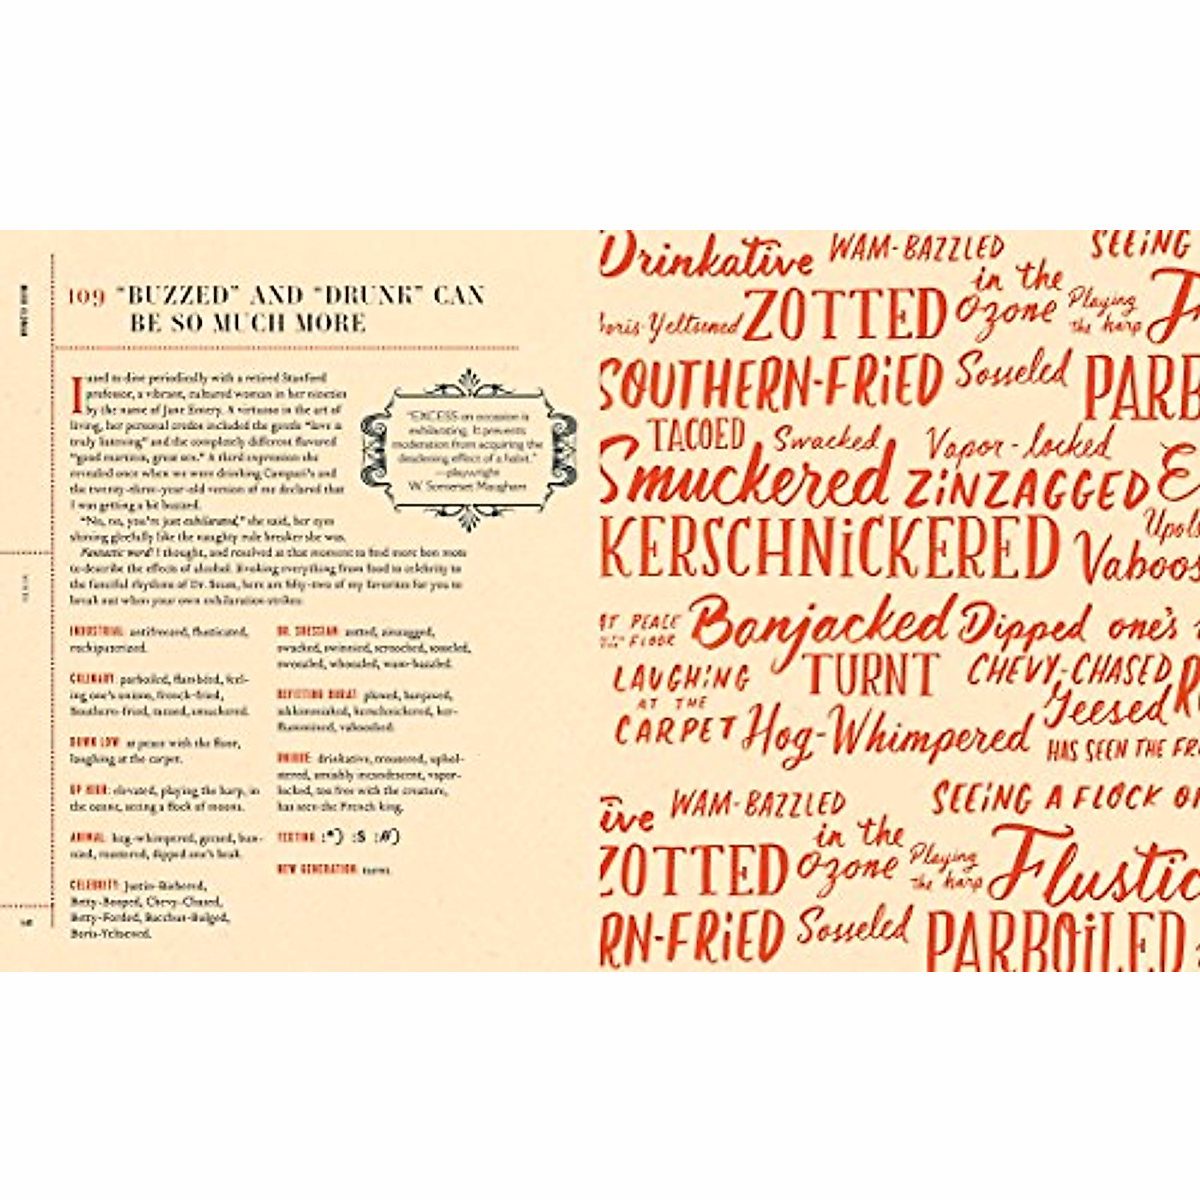 109 “BUZZED” AND “DRUNK” CAN
BE SO MUCH MORE
I used to dine periodically with a retired Stanford
professor, a vibrant, cultured woman in her nineties
by the name of Jane Emery. A virtuoso in the art of
living, her personal credos included the gentle “love is
truly listening” and the completely different flavored
“good martinis, great sex.” A third expression she
revealed once when we were drinking Campari’s and
the twenty-three-year-old version of me declared that
I was getting a bit buzzed.
“No, no, you’re just exhilarated,” she said, her eyes
shining gleefully like the naughty rule breaker she was.
Fantastic word! I thought, and resolved at that moment to find more bon mots
to describe the effects of alcohol. Evoking everything from food to celebrity to
the fanciful rhythms of Dr. Seuss, here are fifty-two of my favorites for you to
break out when your own exhilaration strikes:
“EXCESS on occasion is
exhilarating. It prevents
moderation from acquiring the
deadening effect of a habit.”
—playwright
W. Somerset Maugham
INDUSTRIAL: antifreezed, flusticated,
rockapaterized.
CULINARY: parboiled, flambéed, feel-
ing one’s onion, french-fried,
Southern-fried, tacoed, smuckered.
DOWN LOW: at peace with the floor,
laughing at the carpet.
UP HIGH: elevated, playing the harp, in
the ozone, seeing a flock of moons.
ANIMAL: hog-whimpered, geesed,
dipped one’s beak.
CELEBRITY: Justin-Biebered,
Betty-Booped, Chevy-Chased,
Betty-Forded, Bacchus-Bulged,
Boris-Yeltsened.
DR. SEUSSIAN: zotted, zinzagged,
swacked, swinnied, scrooched, sosseled,
swozzled, whoozled, wam-bazzled.
plowed, banjaxed,
kerschnickered, ker-
flummixed, vaboosled.
UNIQUE: drinkative, trousered, uphol-
stered, amiably incandescent, vapor-
locked, too free with the creature,
has seen the French king.
TEXTING :*) :$ :#)
NEW GENERATION: turnt.
Drinkative WAM-BAZZLED SEEING
in the
Boris-Yeltsened ZOTTED Ozone Playing
the harp
SOUTHERN-FRiED Sosseled PARB
TACOED Swacked Vapor-locked
Smuckered ZiNZAGGED E
KERSCHNiCKERED Upols
Vaboos
AT PEACE
FLOOR Banjacked Dipped one’s
LAUGHiNG
AT THE
CARPET TURNT CHEVY-CHASED
Hog-Whimpered Geesed
HAS SEEN THE FR
ive WAM-BAZZLED SEEiNG A FLOCK O
in the
ZOTTED Ozone Playing
the harp Flustic
RN-FRiED Sosseled PARBOiLED